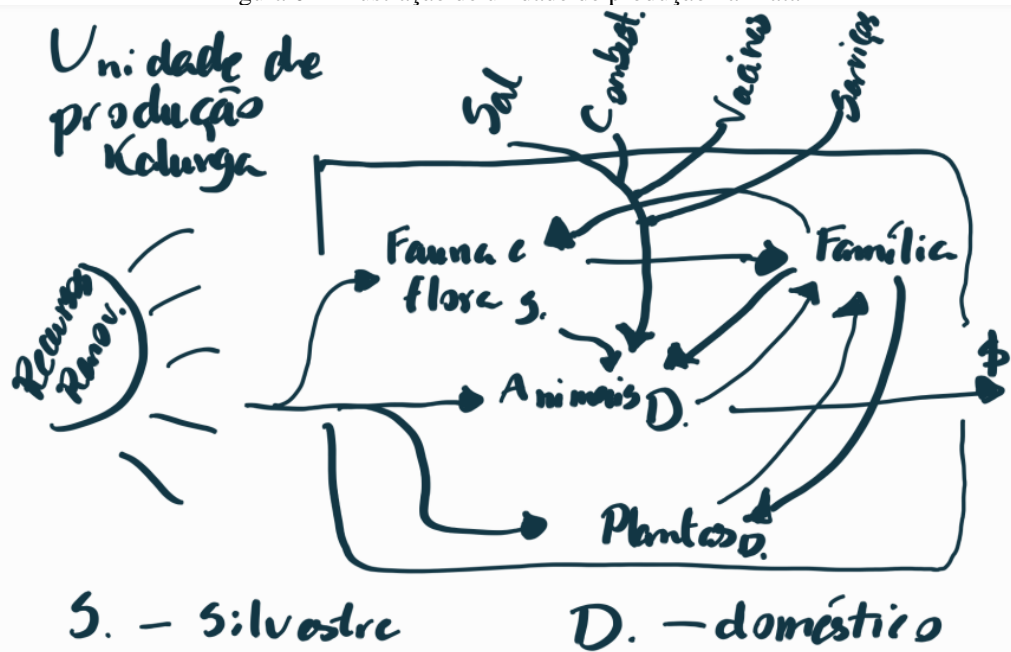 Unidade de
produção
Kalunga
Sal
Combust.
Vacinas
Serviços
Recursos
Renov.
Fauna e
flora s.
Família
Animais D.
$
Plantas D.
S. - Silvestre
D. - doméstico